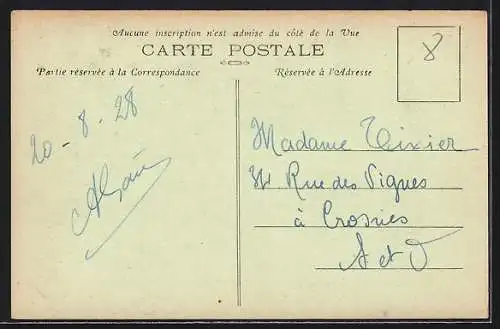 Aucune inscription n'est admise du côté de la Vue
CARTE POSTALE
Partie réservée à la Correspondance
Réservée à l'Adresse
8
20 - 8 - 28
Madame Tixier
34 Rue des Vignes
à Crosnes
S et O